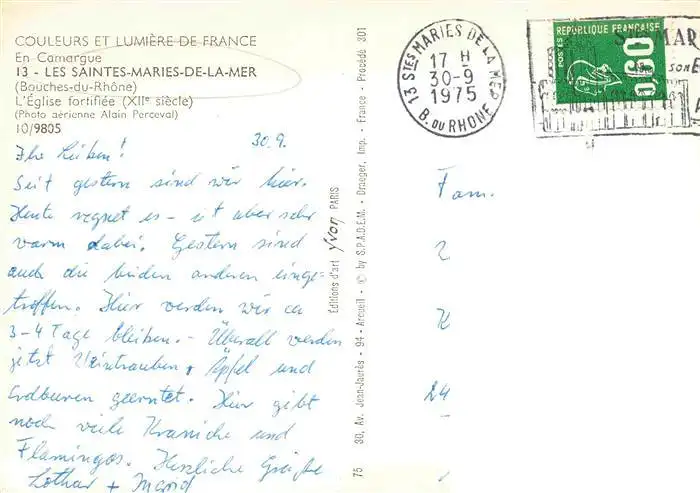 COULEURS ET LUMIÈRE DE FRANCE
En Camargue
13 - LES SAINTES-MARIES-DE-LA-MER
(Bouches-du-Rhône)
L'Église fortifiée (XIIe siècle)
(Photo aérienne Alain Perceval)
10/9805
30.9.
Ihr Lieben!
Seit gestern sind wir hier.
Heute regnet es - ist aber sehr
warm dabei. Gestern sind
auch die beiden anderen einge-
troffen. Hier werden wir ca
3-4 Tage bleiben. - Überall werden
jetzt Weintrauben, Äpfel und
Erdbeeren geerntet. Hier gibt
noch viele Kraniche und
Flamingos. Herzliche Grüße
Lothar + Ingrid
Éditions d'art Yvon PARIS
75 30, Av. Jean-Jaurès - 94 - Arcueil - © by S.P.A.D.E.M. - Draeger, Imp. - France - Procédé 301
13 STES MARIES DE LA MER
17 H
30-9
1975
B. DU RHONE
REPUBLIQUE FRANÇAISE
POSTES
0,60
MAR
son
Fam.
24